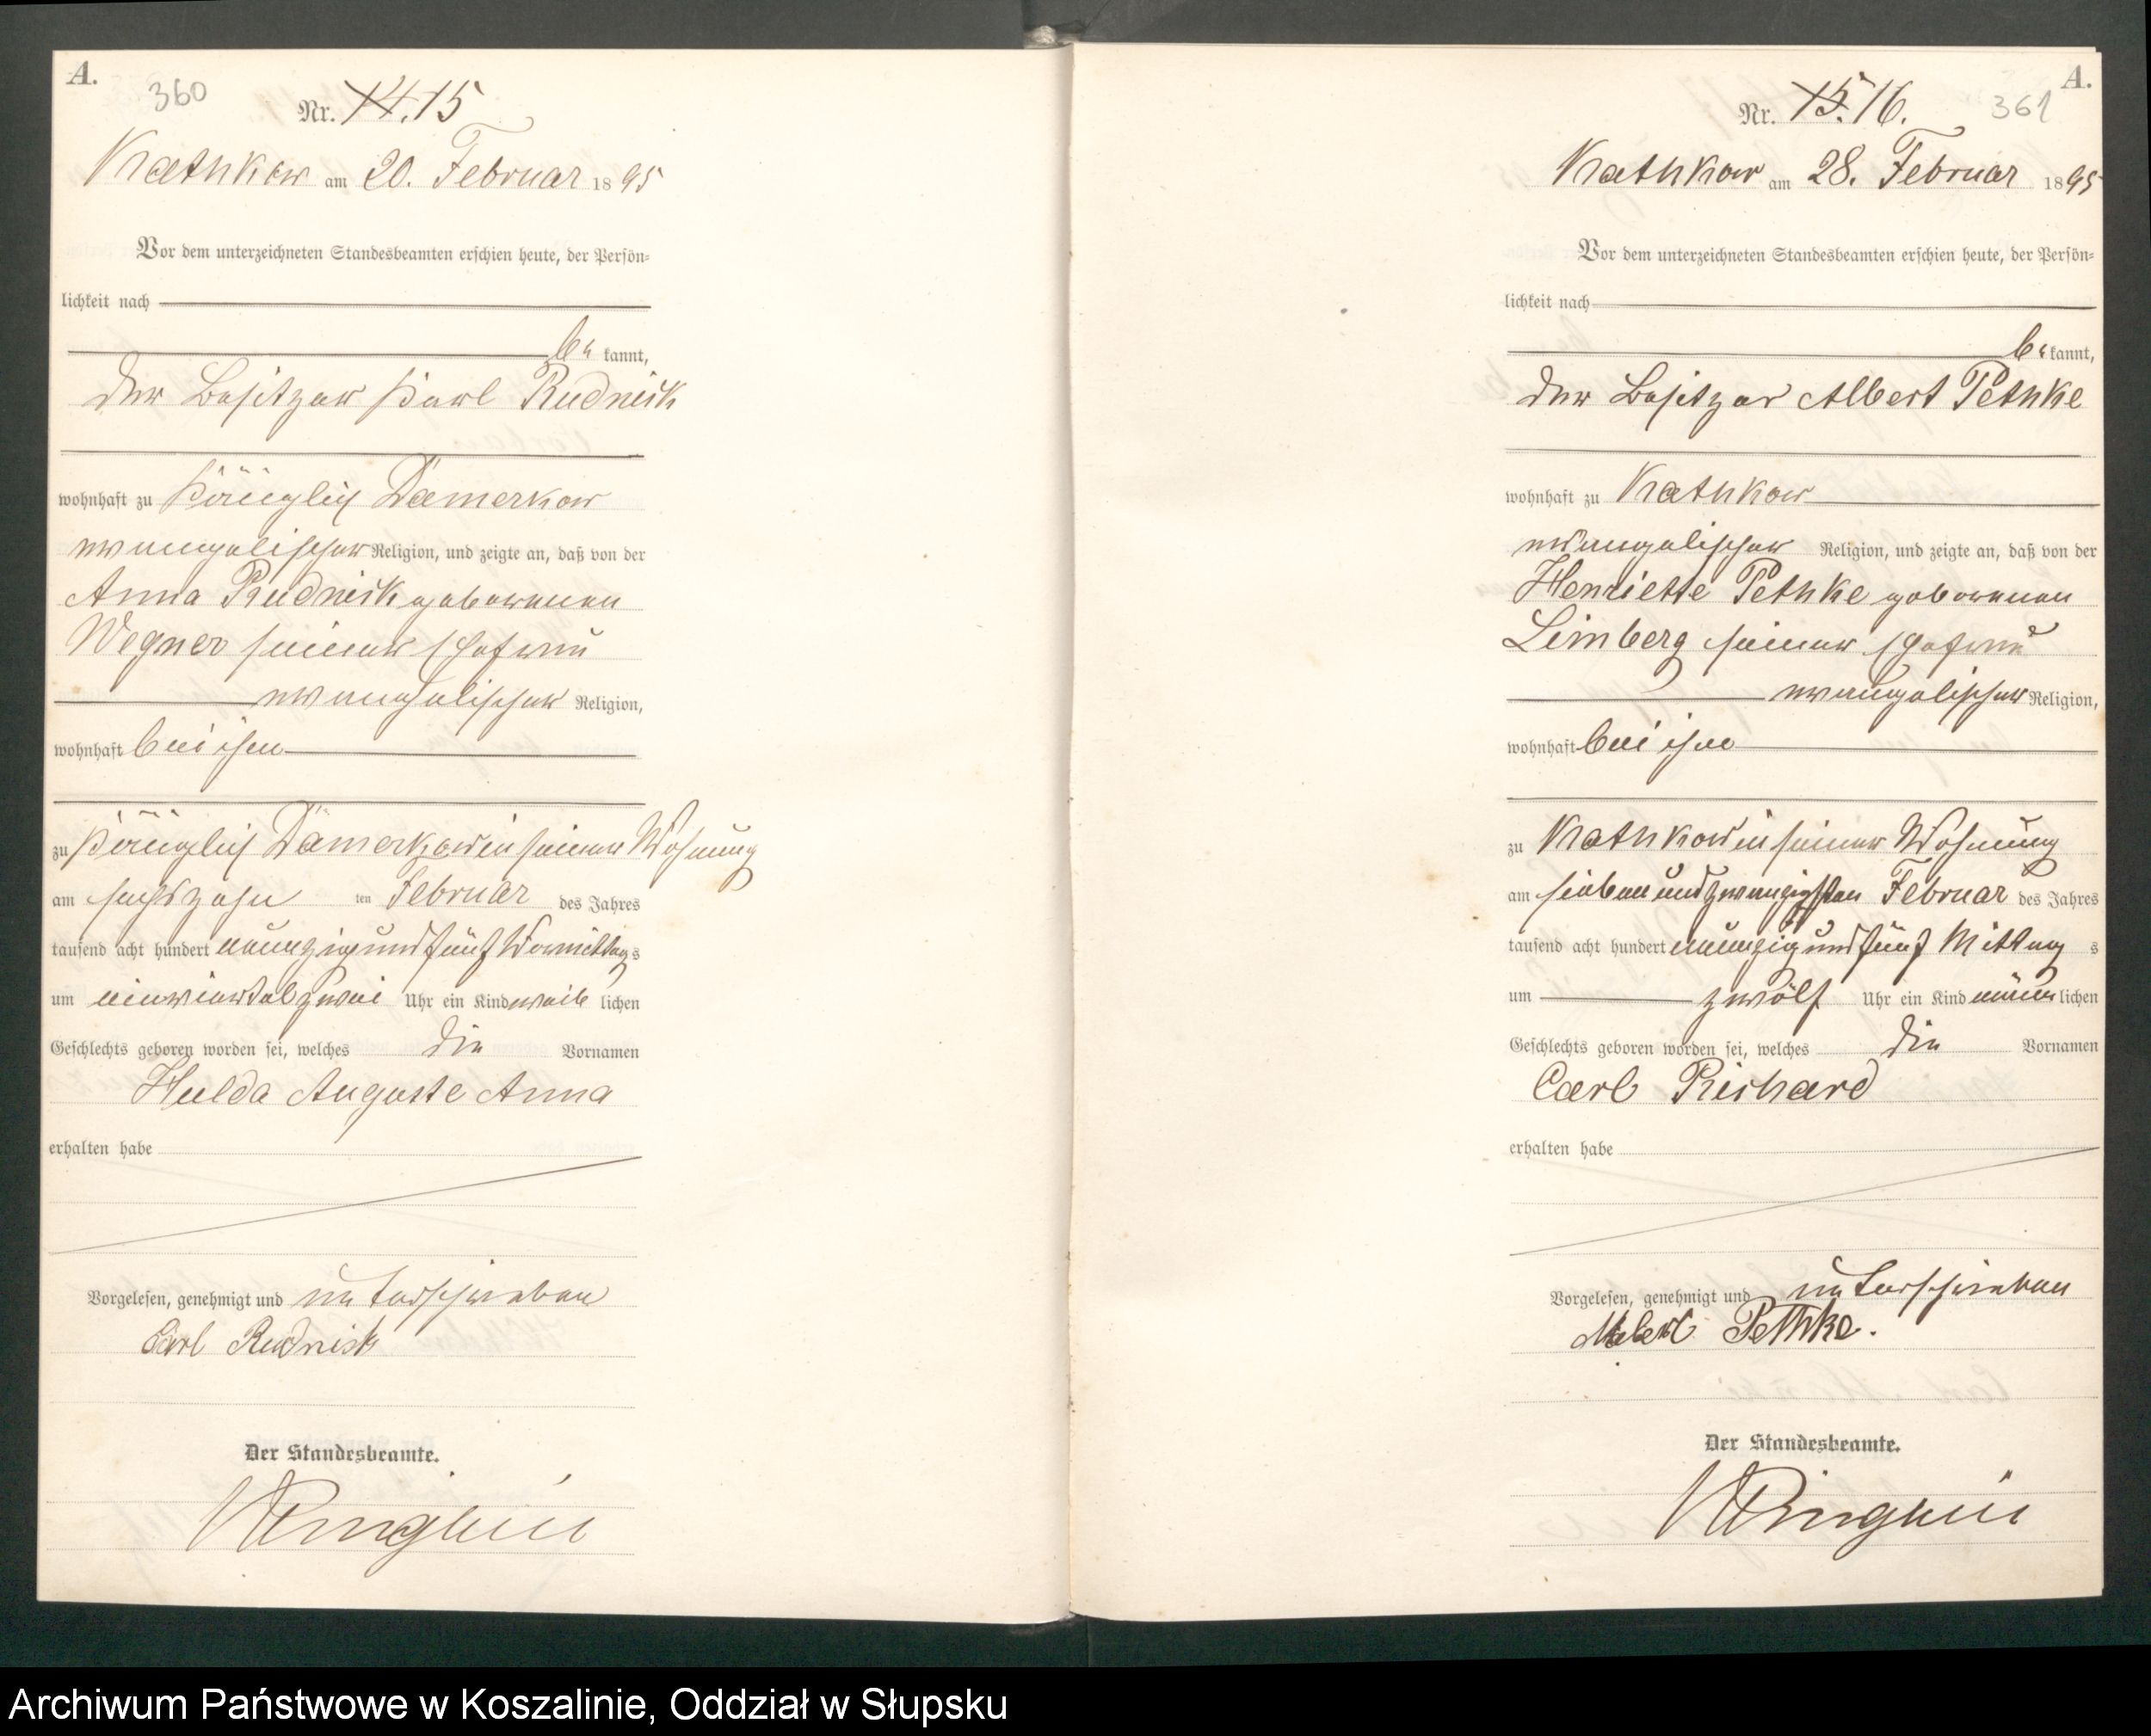 A.
360
Nr. 14. 15
Kathkow am 20. Februar 1895
Vor dem unterzeichneten Standesbeamten erschien heute, der Persön-
lichkeit nach
be kannt,
der Besitzer Karl Rudnick
wohnhaft zu Königlich Damerkow
evangelischer Religion, und zeigte an, daß von der
Anna Rudnick geborenen
Wegner seiner Ehefrau
evangelischer Religion,
wohnhaft bei ihm
zu Königlich Damerkow in seiner Wohnung
am sechszehn ten Februar des Jahres
tausend acht hundert neunzig und fünf Vormittags
um einviertel zwei Uhr ein Kind weib lichen
Geschlechts geboren worden sei, welches die Vornamen
Hulda Auguste Anna
erhalten habe
Vorgelesen, genehmigt und unterschrieben
Carl Rudnick
Der Standesbeamte.
A.
361
Nr. 15. 16.
Kathkow am 28. Februar 1895
Vor dem unterzeichneten Standesbeamten erschien heute, der Persön-
lichkeit nach
be kannt,
der Besitzer Albert Pethke
wohnhaft zu Kathkow
evangelischer Religion, und zeigte an, daß von der
Henriette Pethke geborenen
Limberg seiner Ehefrau
evangelischer Religion,
wohnhaft bei ihm
zu Kathkow in seiner Wohnung
am siebenundzwanzigsten Februar des Jahres
tausend acht hundert neunzig und fünf Mittag s
um zwölf Uhr ein Kind männ lichen
Geschlechts geboren worden sei, welches die Vornamen
Carl Richard
erhalten habe
Vorgelesen, genehmigt und unterschrieben
Albert Pethke.
Der Standesbeamte.
Archiwum Państwowe w Koszalinie, Oddział w Słupsku